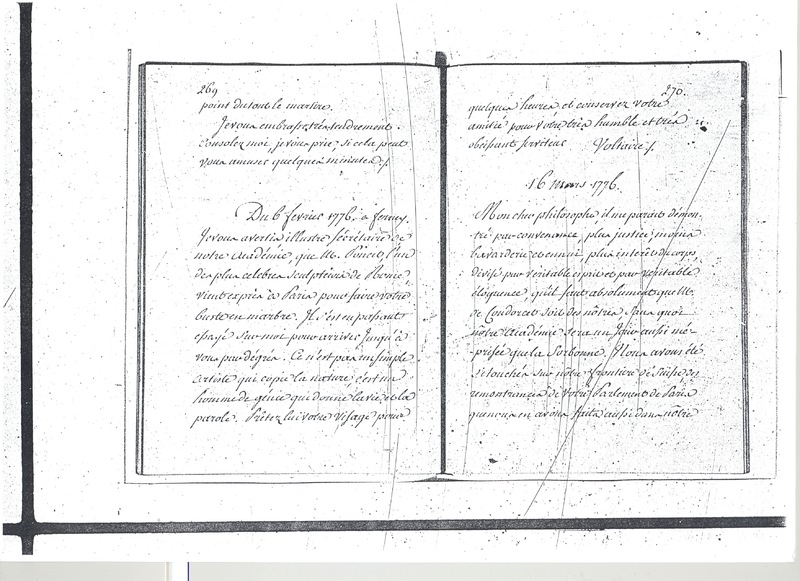 269
point du tout le martire.
Je vous embrasse très tendrement.
Consolez moi, je vous prie, si cela peut
vous amuser quelques minutes /.
Du 6 fevrier 1776. à ferney.
Je vous avertis illustre sécrétaire de
notre Académie, que M. Poncet l'un
des plus celebres sculpteurs de Rome,
vient exprès à Paris pour faire votre
buste en marbre. Il s'est en passant
essayé sur moi pour arriver jusqu'à
vous par dégrés. Ce n'est pas un simple
artiste qui copie la nature, c'est un
homme de génie qui donne la vie et la
parole. Prêtez lui votre visage pour
270.
quelques heures et conservez votre
amitié pour vôtre très humble et très
obéissant serviteur Voltaire /.
16 Mars 1776.
Mon cher philosophe, il me parait démon-
tré par convenance, plus justice, moins
bavarderie et ennui, plus intérêt du corps,
divisé par véritable esprit et par véritable
éloquence, qu'il faut absolument que M.
de Condorcet soit des nôtres. Sans quoi
nôtre Académie sera un jour aussi mé-
prisée que la Sorbonne. Nous avons été
si touchés sur nôtre frontière de Suisse, des
remontrances de votre Parlement de Paris
que nous en avons faits aussi dans nôtre